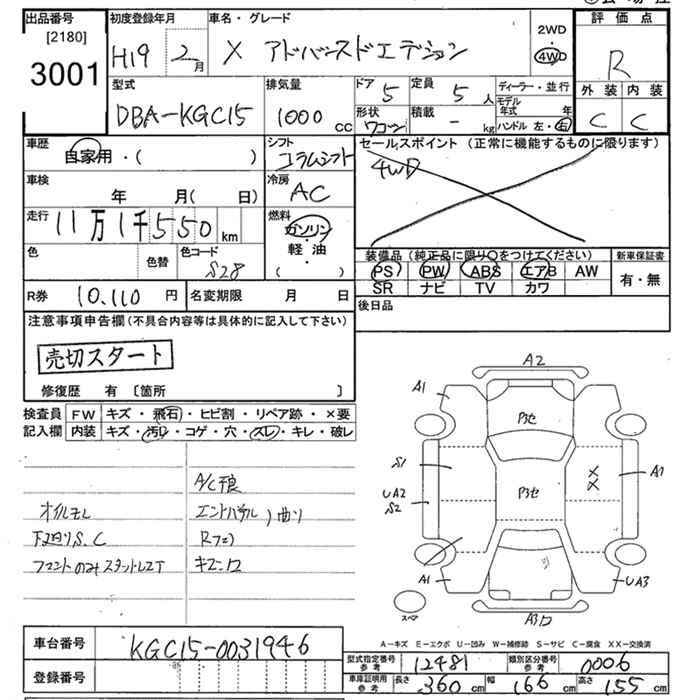 出品番号
[2180]
3001
初度登録年月
H19 2月
車名・グレード
X アドバンスドエディション
2WD
4WD
評価点
R
外装 内装
C C
型式
DBA-KGC15
排気量
1000 cc
ドア 5
定員 5 人
形状 ワゴン
積載 - kg
ディーラー・並行
モデル年式 年
ハンドル 左・右
車歴
自家用・( )
シフト
コラムシフト
セールスポイント (正常に機能するものに限ります)
4WD
車検
年 月( 日)
冷房
AC
走行
11万1千550 km
燃料
ガソリン
軽・油
( )
色
色替
色コード
S28
装備品 (純正品に限り○をつけてください)
PS PW ABS エアB AW
SR ナビ TV カワ
新車保証書
有・無
R券 10,110 円
名変期限 月 日
後日品
注意事項申告欄 (不具合内容等は具体的に記入して下さい)
売切スタート
修復歴 有 [箇所 ]
検査員 FW キズ・飛石・ヒビ割・リペア跡・×要
記入欄 内装 キズ・汚レ・コゲ・穴・スレ・キレ・破レ
A/C不良
オイルモレ
エンドパネル)曲り
下廻りS、C
Rフェンダ
フロントのみスタットレスT
キズ・凹
A2
A1
P3セ
S1
UA2
S2
P3セ
X
X
A1
A1
UA3
スペア
A3凹
A-キズ E-エクボ U-凹み W-補修跡 S-サビ C-腐食 XX-交換済
車台番号 KGC15-0031946
登録番号
型式指定番号 参考 12481
類別区分番号 参考 0006
車庫証明用 参考 長さ 360 cm 幅 166 cm 高さ 155 cm